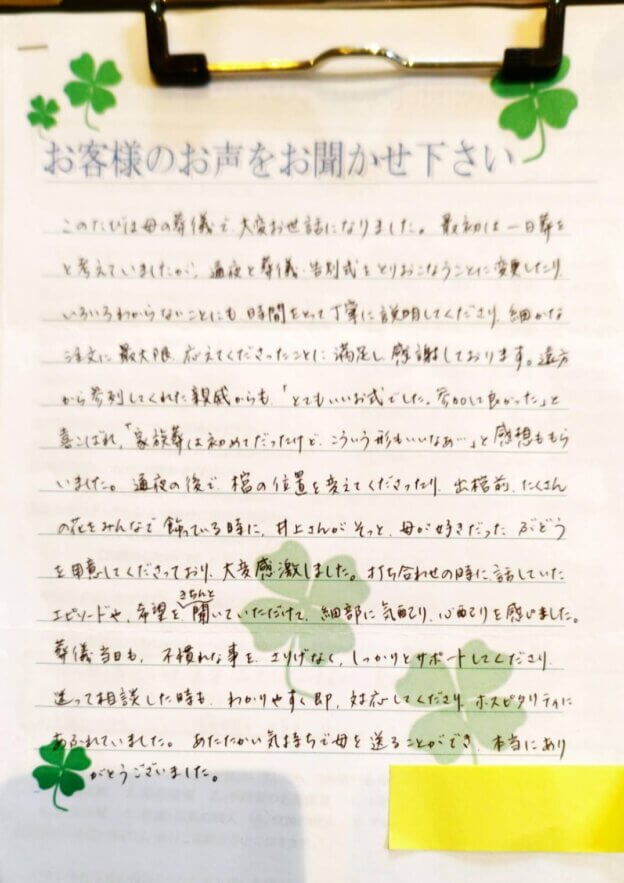 お客様のお声をお聞かせ下さい
このたびは母の葬儀で、大変お世話になりました。最初は一日葬を
と考えていましたが、通夜と葬儀・告別式をとりおこなうことに変更したり、
いろいろわからないことにも、時間をとって丁寧に説明してくださり、細かな
注文に最大限、応えてくださったことに満足し、感謝しております。遠方
から参列してくれた親戚からも、「とてもいいお式でした。参加して良かった」と
喜こばれ、「家族葬は初めてだったけど、こういう形もいいなあ…」と感想ももら
いました。通夜の後で、棺の位置を変えてくださったり、出棺前、たくさん
の花をみんなで飾っている時に、井上さんがそっと、母が好きだった ぶどう
を用意してくださっており、大変感激しました。打ち合わせの時に話していた
エピソードや、希望をきちんと聞いていただけて、細部に気配り、心配りを感じました。
葬儀当日も、不慣れな事を、さりげなく、しっかりとサポートしてくださり、
迷って相談した時も、わかりやすく即、対応してくださり、ホスピタリティに
あふれていました。あたたかい気持ちで母を送ることができ、本当にあり
がとうございました。